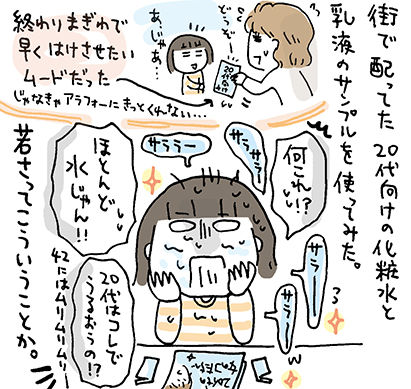 街で配ってた20代向けの化粧水と
乳液のサンプルを使ってみた。
どうぞー
20代の
あ、じゃあ…
終わりまぎわで
早くはけさせたい
ムードだった
じゃなきゃアラフォーにきってくんない…
何これ!?
サラサラー
サラー
サラー
サララー
ほとんど
水じゃん!!
20代はコレで
うるおうの!?
42にはムリムリムリ
若さってこういうことか。